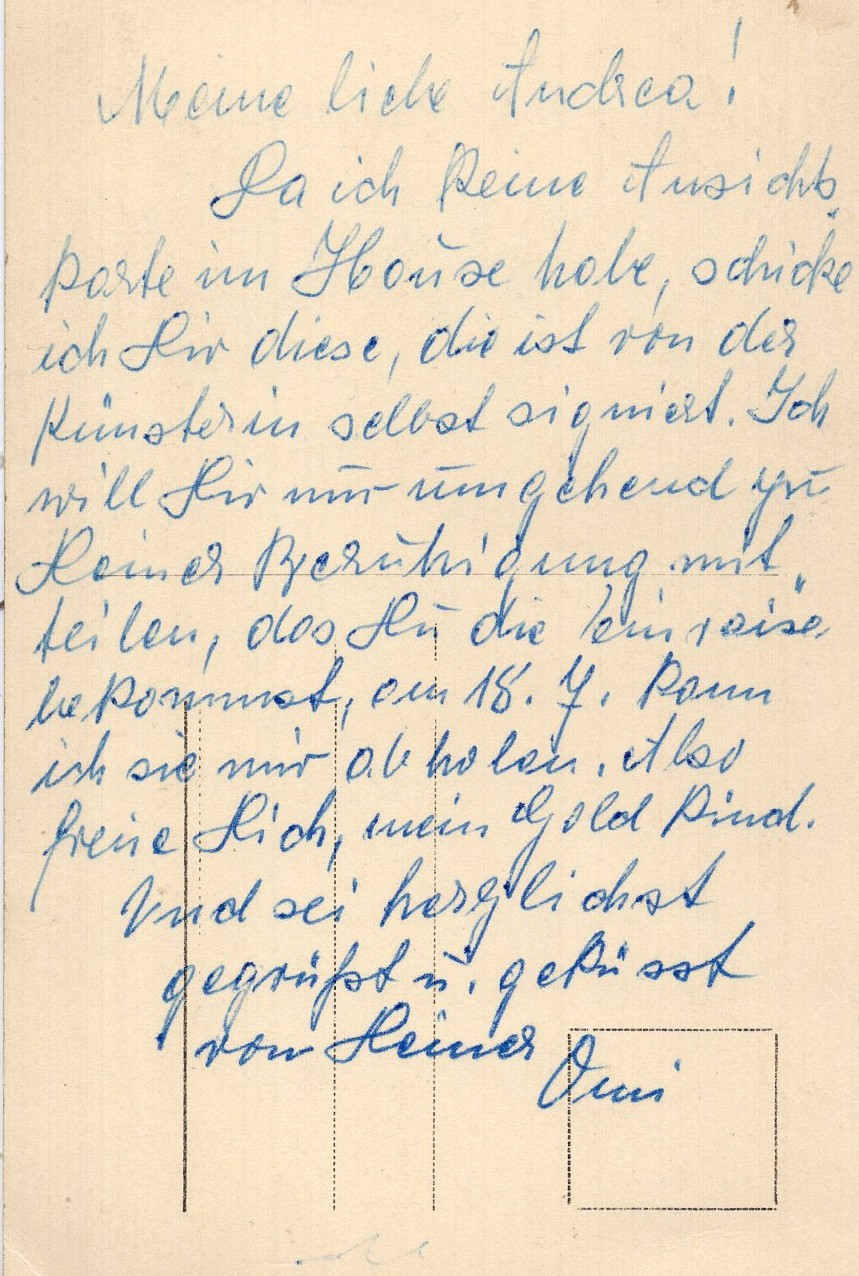 Meine liebe Andrea!
Da ich keine Ansichts-
karte im Hause habe, schicke
ich Dir diese, die ist von der
Künsterin selbst signiert. Ich
will Dir nur umgehend zu
Deiner Beruhigung mit-
teilen, das Du die Einreise
bekommst, am 18. 7. kann
ich sie mir abholen. Also
freue Dich, mein Gold Kind.
Und sei herzlichst
gegrüßt u. geküsst
von Deiner
Omi